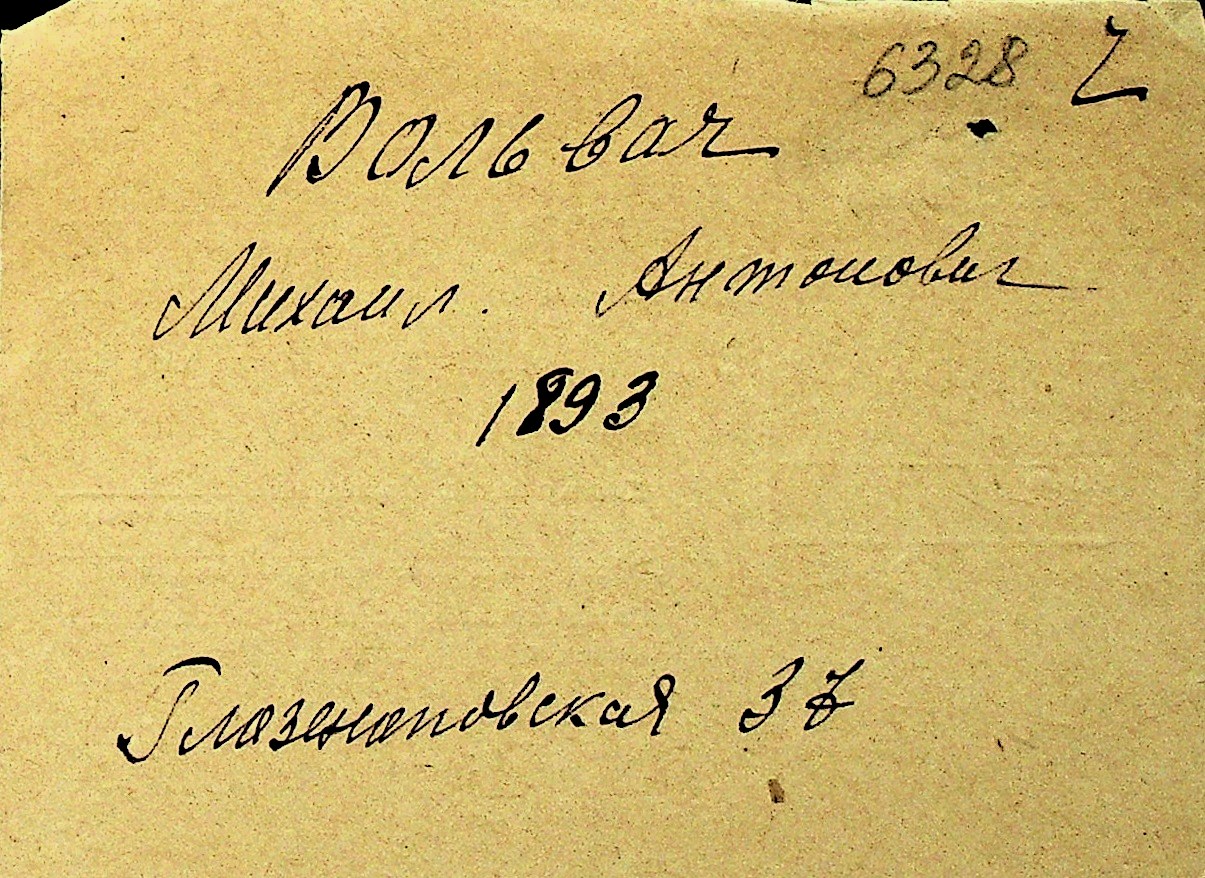 6328 2
Вольвач
Михаил. Антонович
1893
Глазенаповская 37